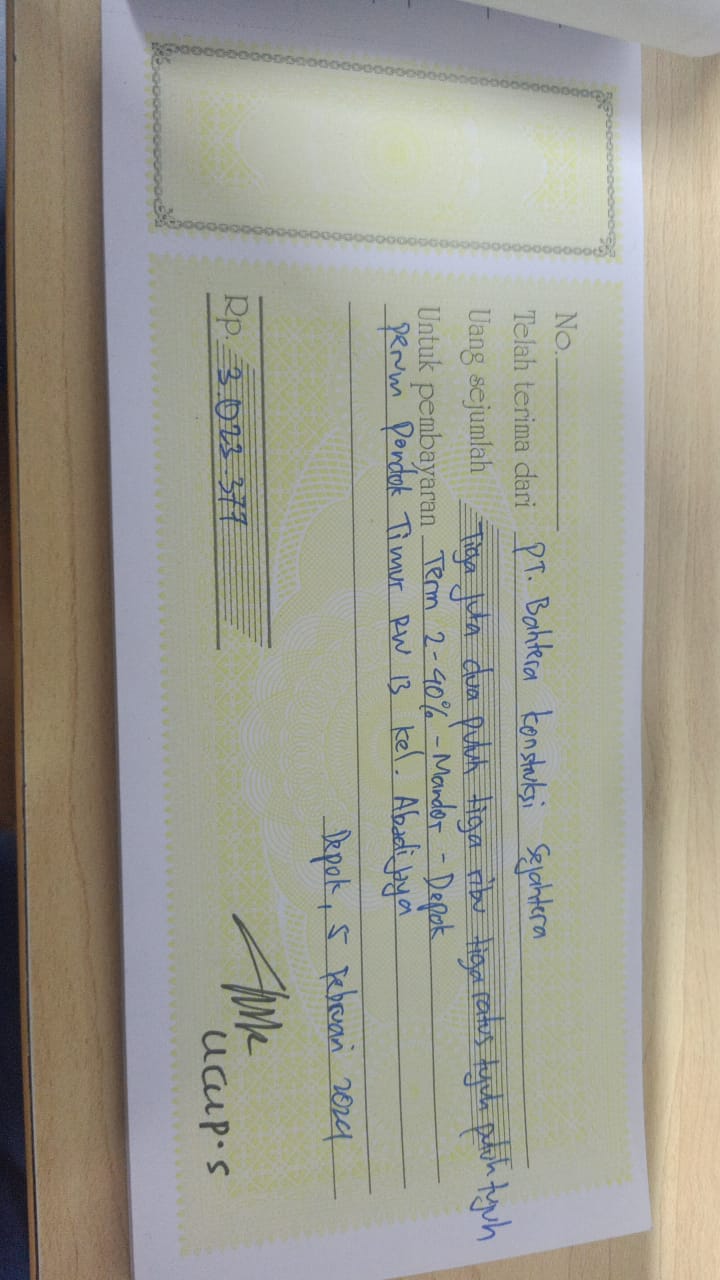 No.
Telah terima dari PT. Bahtera Konstruksi Sejahtera
Uang sejumlah Tiga juta dua puluh tiga ribu tiga ratus tujuh puluh tujuh
Untuk pembayaran Term 2 - 40% - Mandor - Depok
Perum Pondok Timur RW 13 Kel. Abadijaya
Depok, 5 Februari 2024
Rp. 3.023.377
Ucup.S